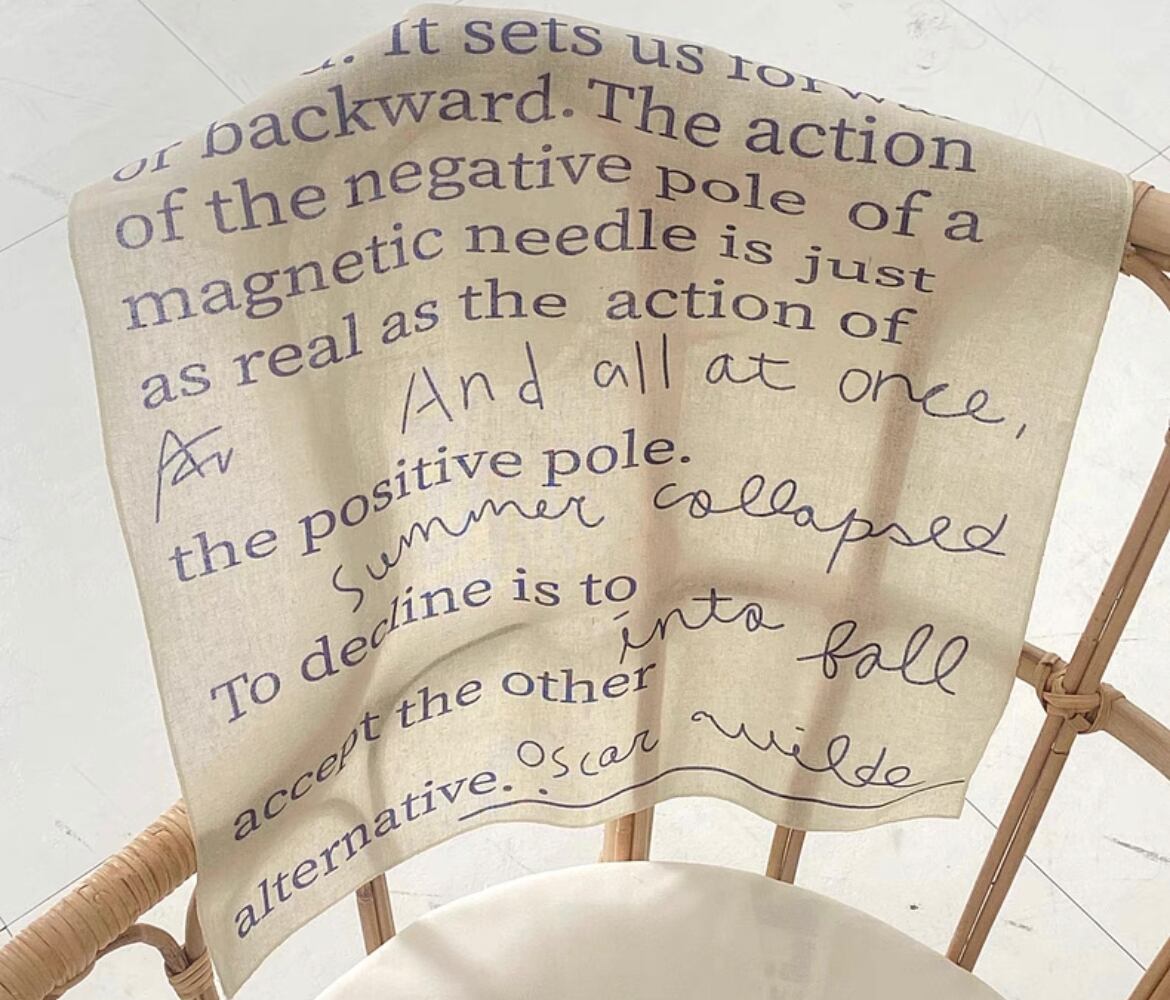 . It sets us forwa
or backward. The action
of the negative pole of a
magnetic needle is just
as real as the action of
And all at once,
the positive pole.
summer collapsed
To decline is to
into fall
accept the other
Oscar Wilde
alternative.